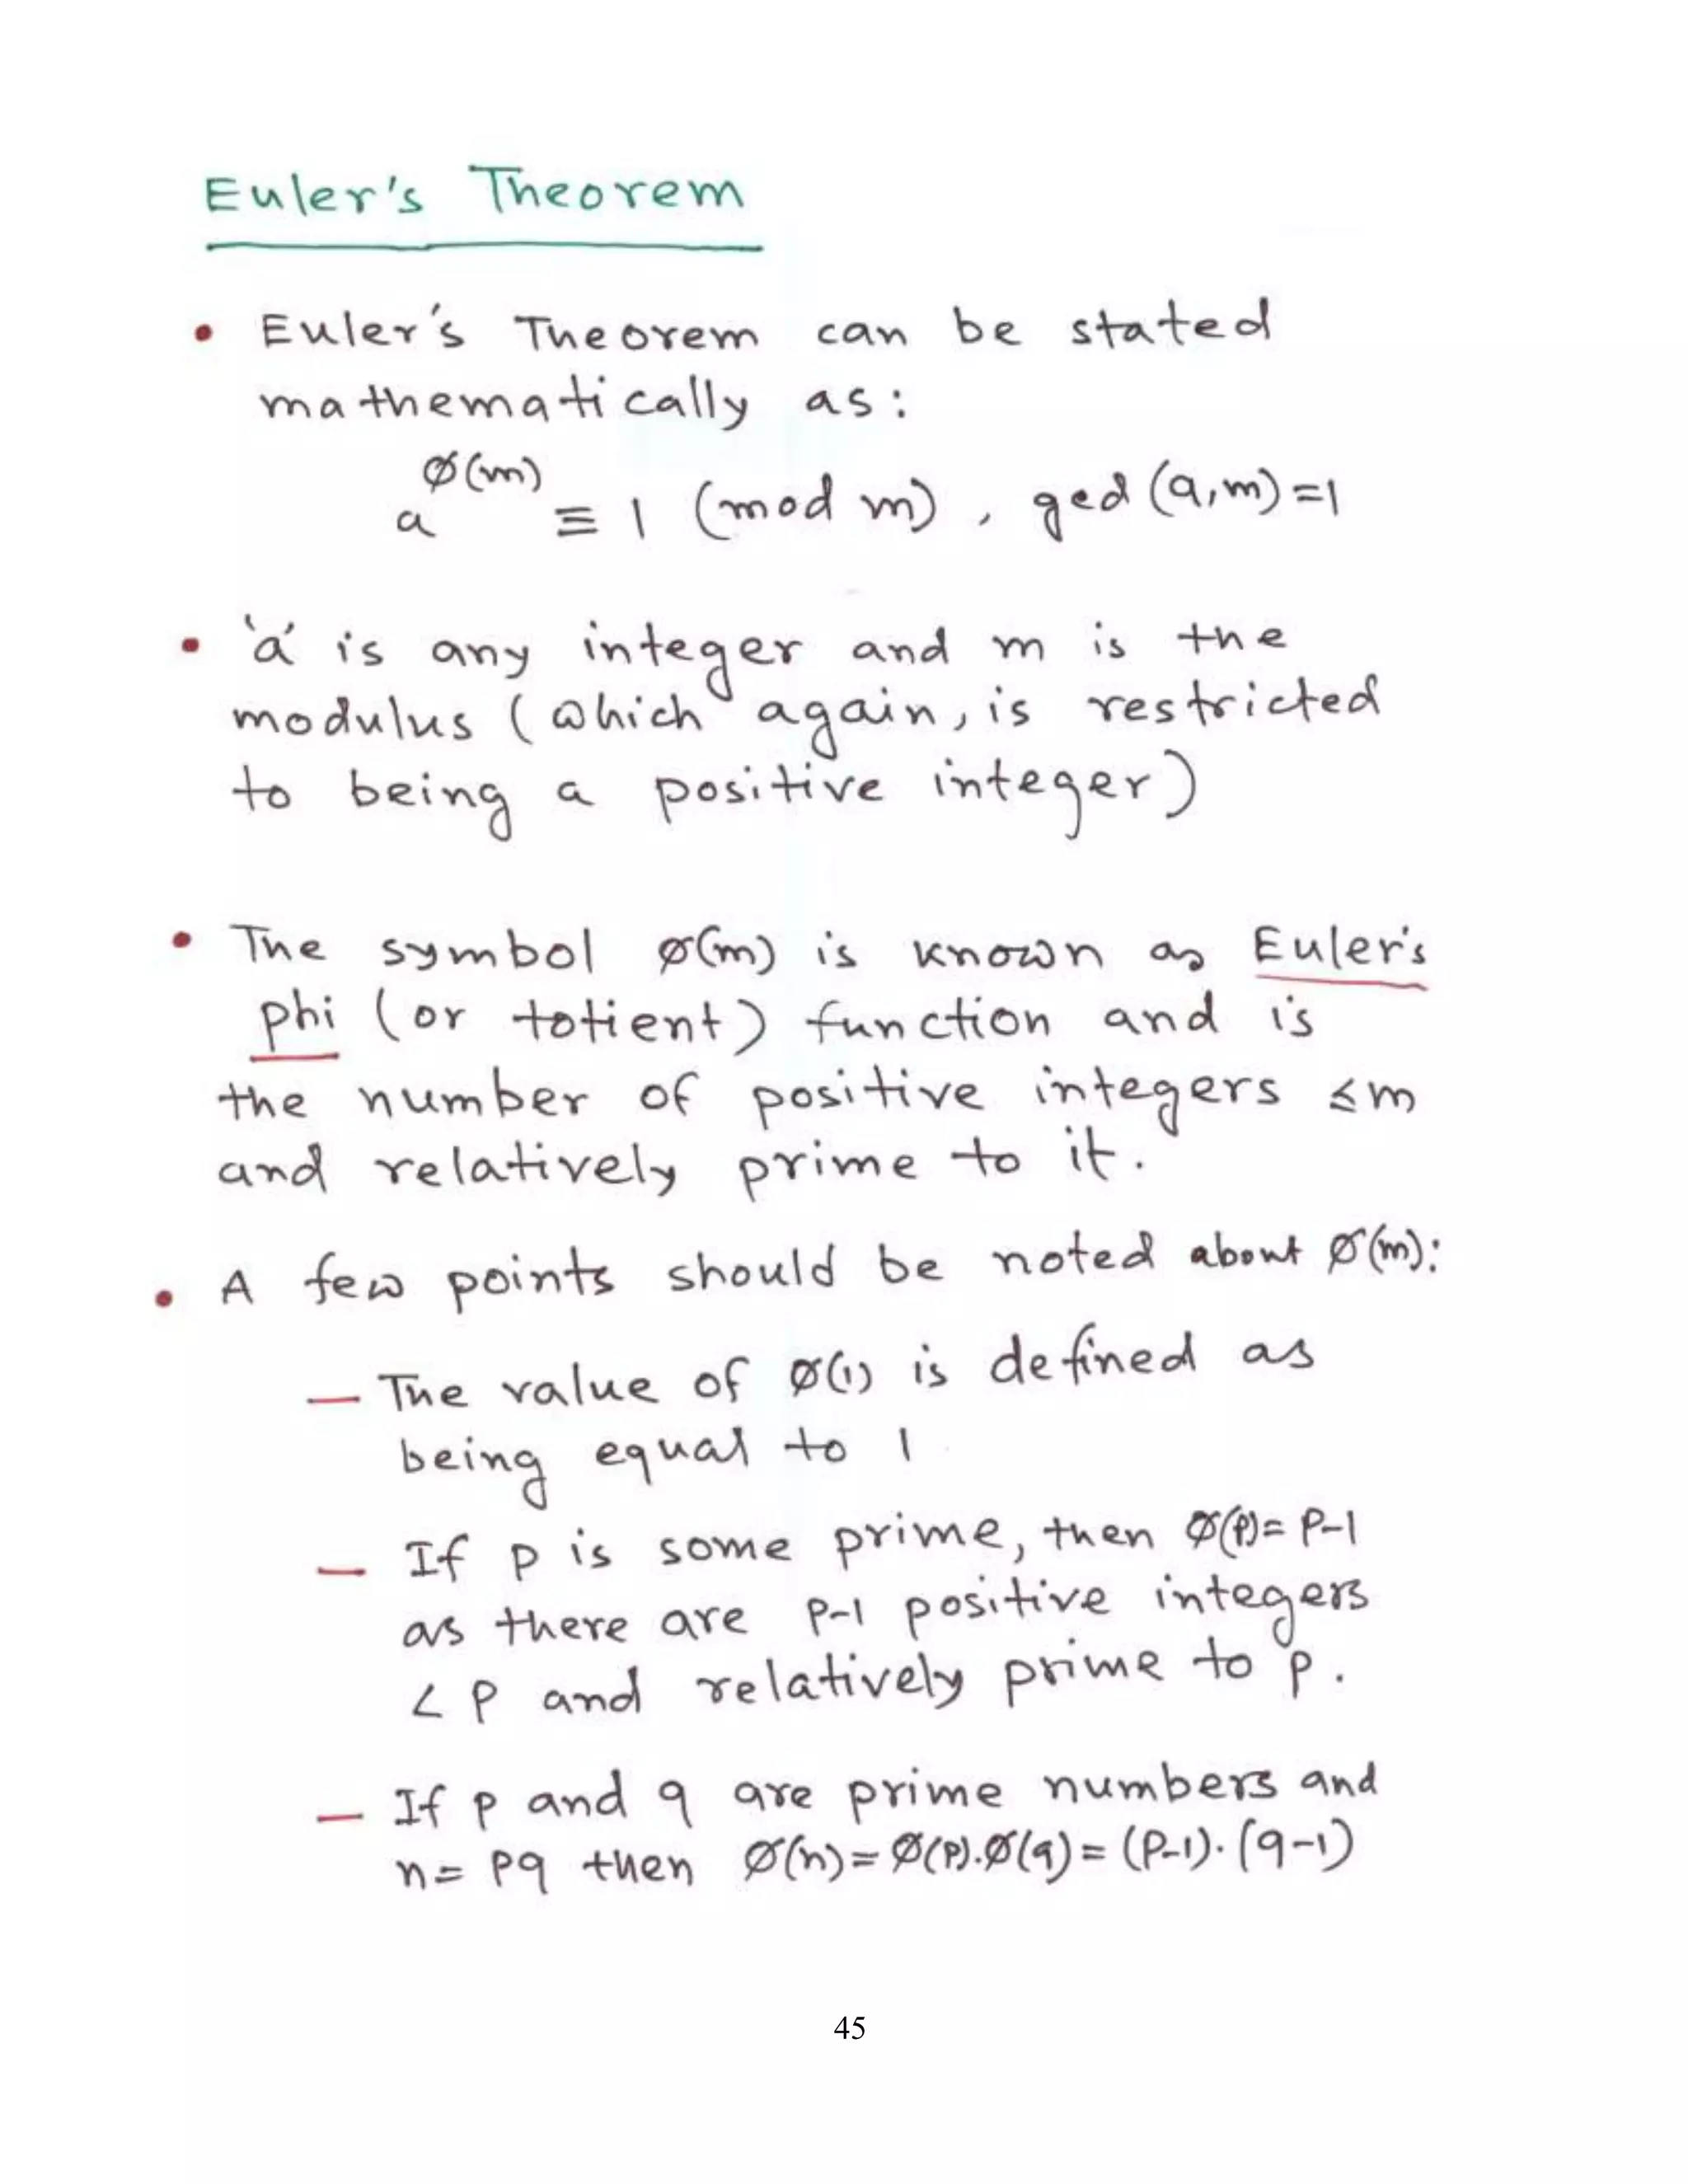 Euler's Theorem
• Euler's Theorem can be stated
mathematically as:
a^ø(m) ≡ 1 (mod m), gcd (a,m)=1
• 'a' is any integer and m is the
modulus (which again, is restricted
to being a positive integer)
• The symbol ø(m) is known as Euler's
phi (or totient) function and is
the number of positive integers ≤m
and relatively prime to it.
• A few points should be noted about ø(m):
— The value of ø(1) is defined as
being equal to 1
— If p is some prime, then ø(p)= p-1
as there are p-1 positive integers
< p and relatively prime to p.
— If p and q are prime numbers and
n= pq then ø(n)= ø(p).ø(q)= (p-1).(q-1)
45